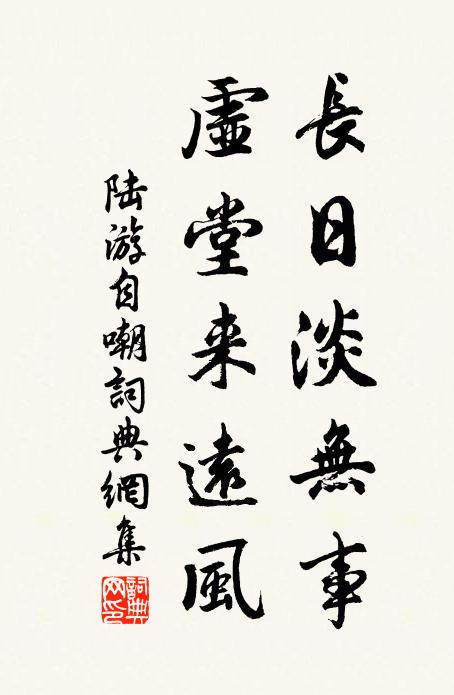 長日淡無事
虛堂来遠風
陆游自嘲詞典網集
詞典网印